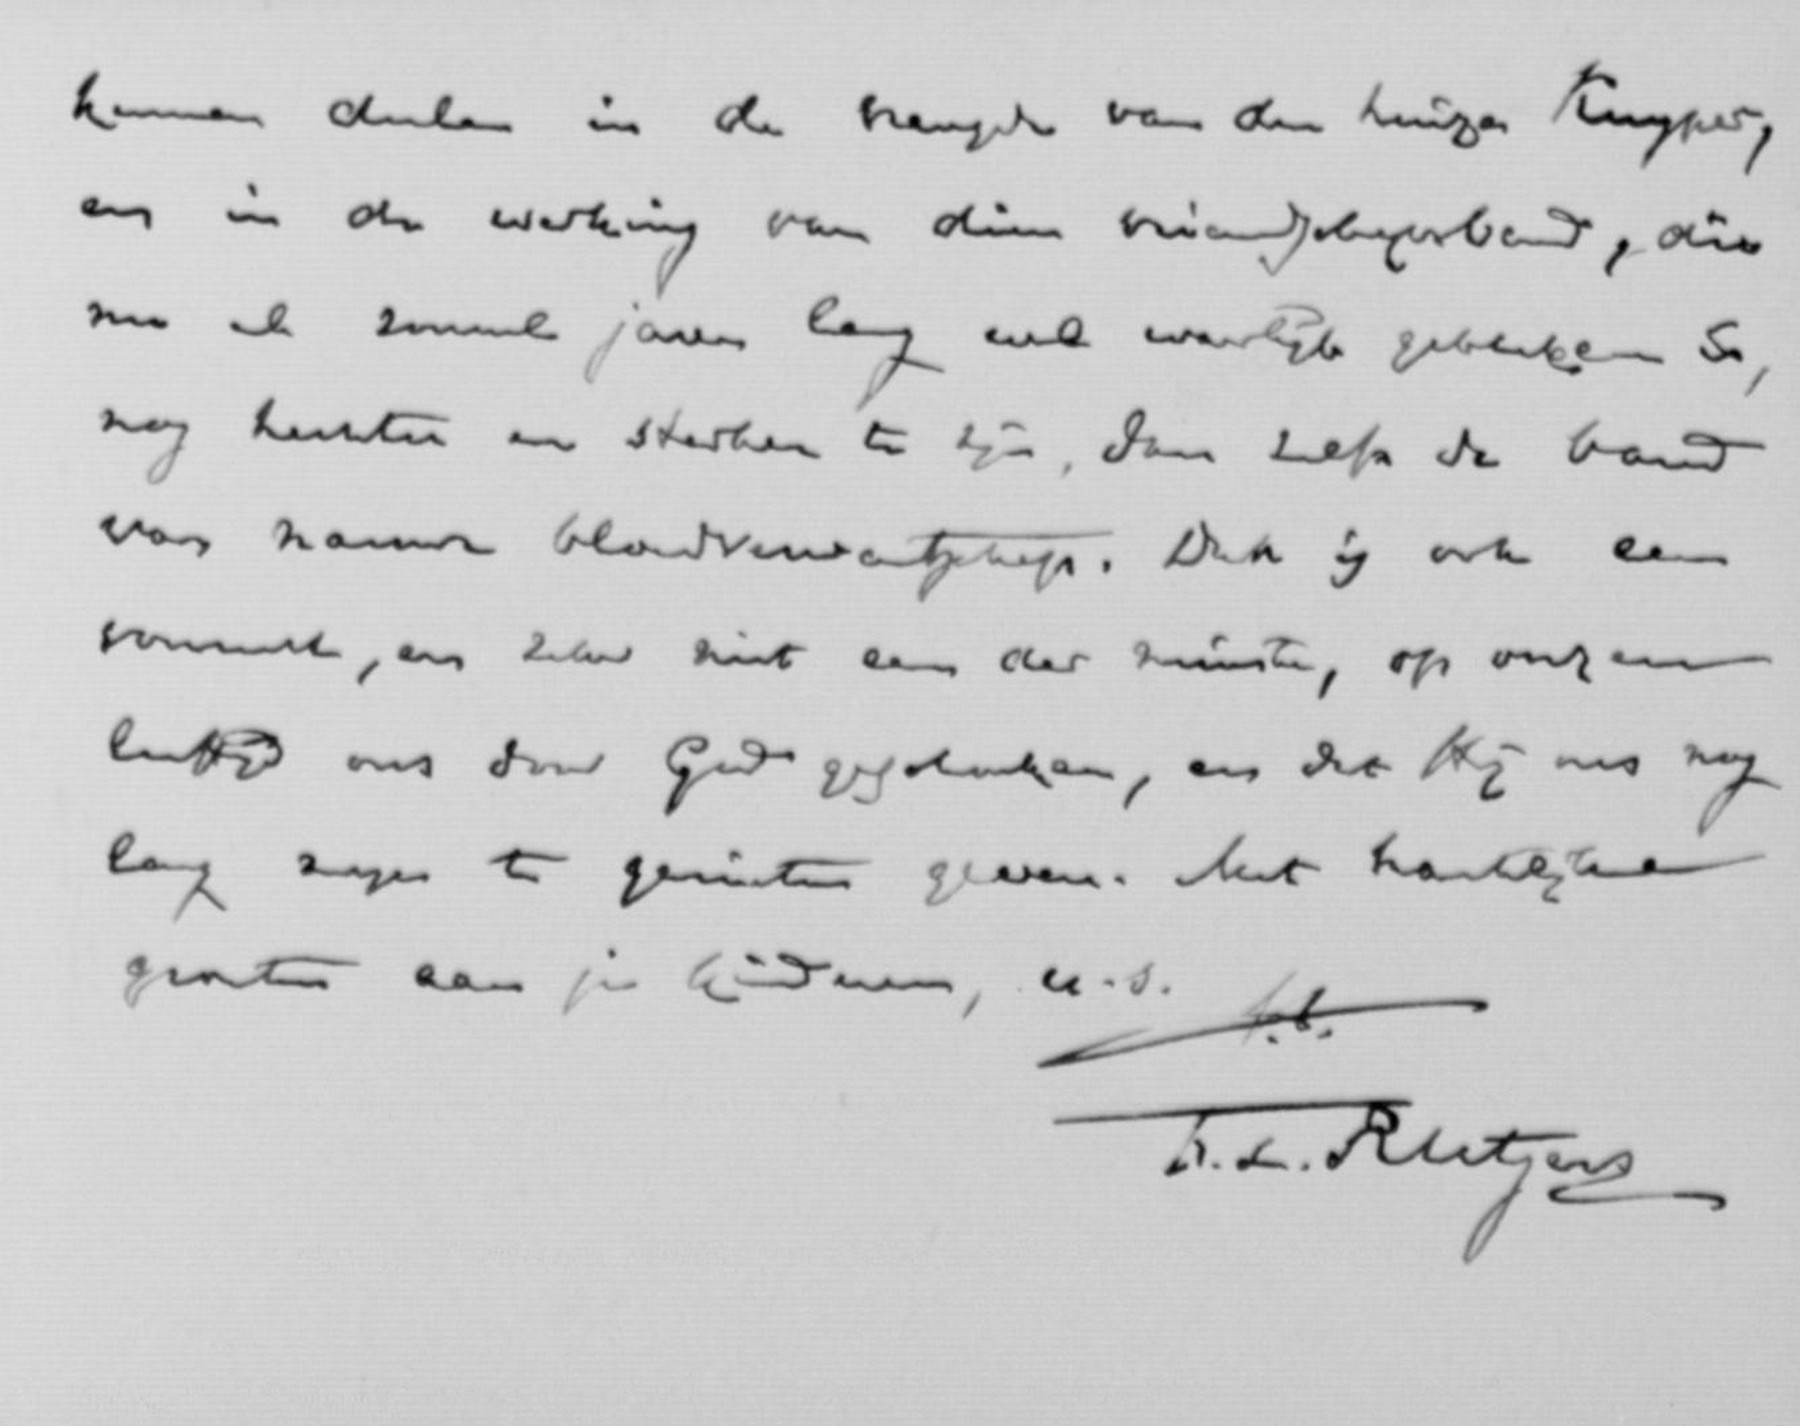 kunnen deelen in de vreugde van den huize Kuyper,
en in de werking van dien vriendschapsband, die
nu al zooveel jaren lang wel waarlijk gebleken is,
nog hechter en sterker te zijn, dan zelfs de band
van nauwe bloedverwantschap. Dat is ook een
voorrecht, en zeker niet een der minste, op onzen
leeftijd ons door God geschonken, en dat Hij ons nog
lang moge te genieten geven. Met hartelijke
groeten aan je kinderen, u.s.
t.t.
F. L. Rutgers